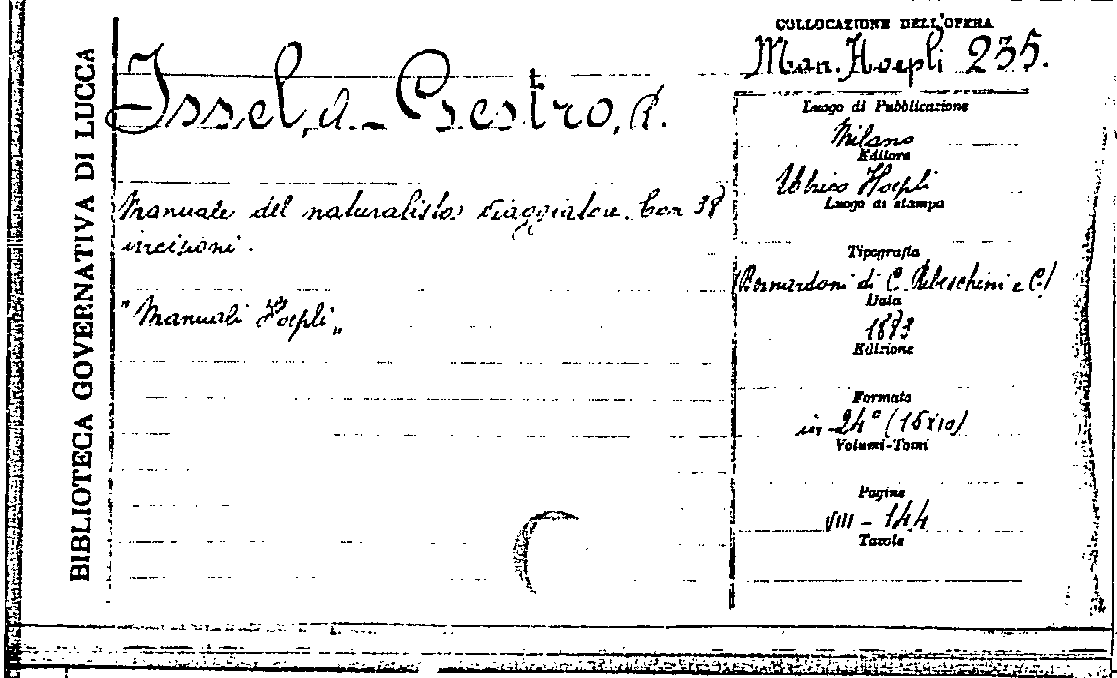 BIBLIOTECA GOVERNATIVA DI LUCCA
Issel, A - Gestro, R.
Manuale del naturalista viaggiatore. Con 38
incisioni.
"Manuali Hoepli"
COLLOCAZIONE DELL'OPERA
Man. Hoepli 235.
Luogo di Pubblicazione
Milano
Editore
Ulrico Hoepli
Luogo di stampa
Tipografia
(Bernardoni di C. Rebeschini e C.)
Data
1883
Edizione
Formato
in-24° (15x10)
Volumi-Tomi
Pagine
VIII - 144
Tavole